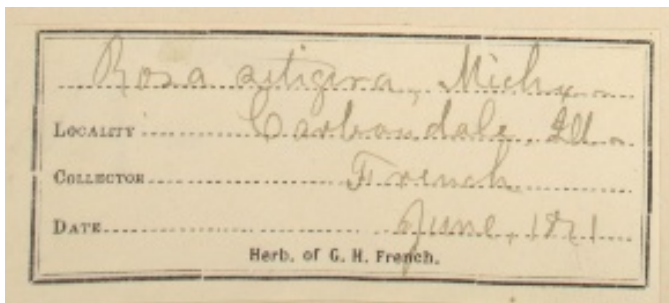 Rosa setigera, Michx.
LOCALITY Carbondale, Ill.
COLLECTOR French.
DATE June,
Herb. of G. H. French.